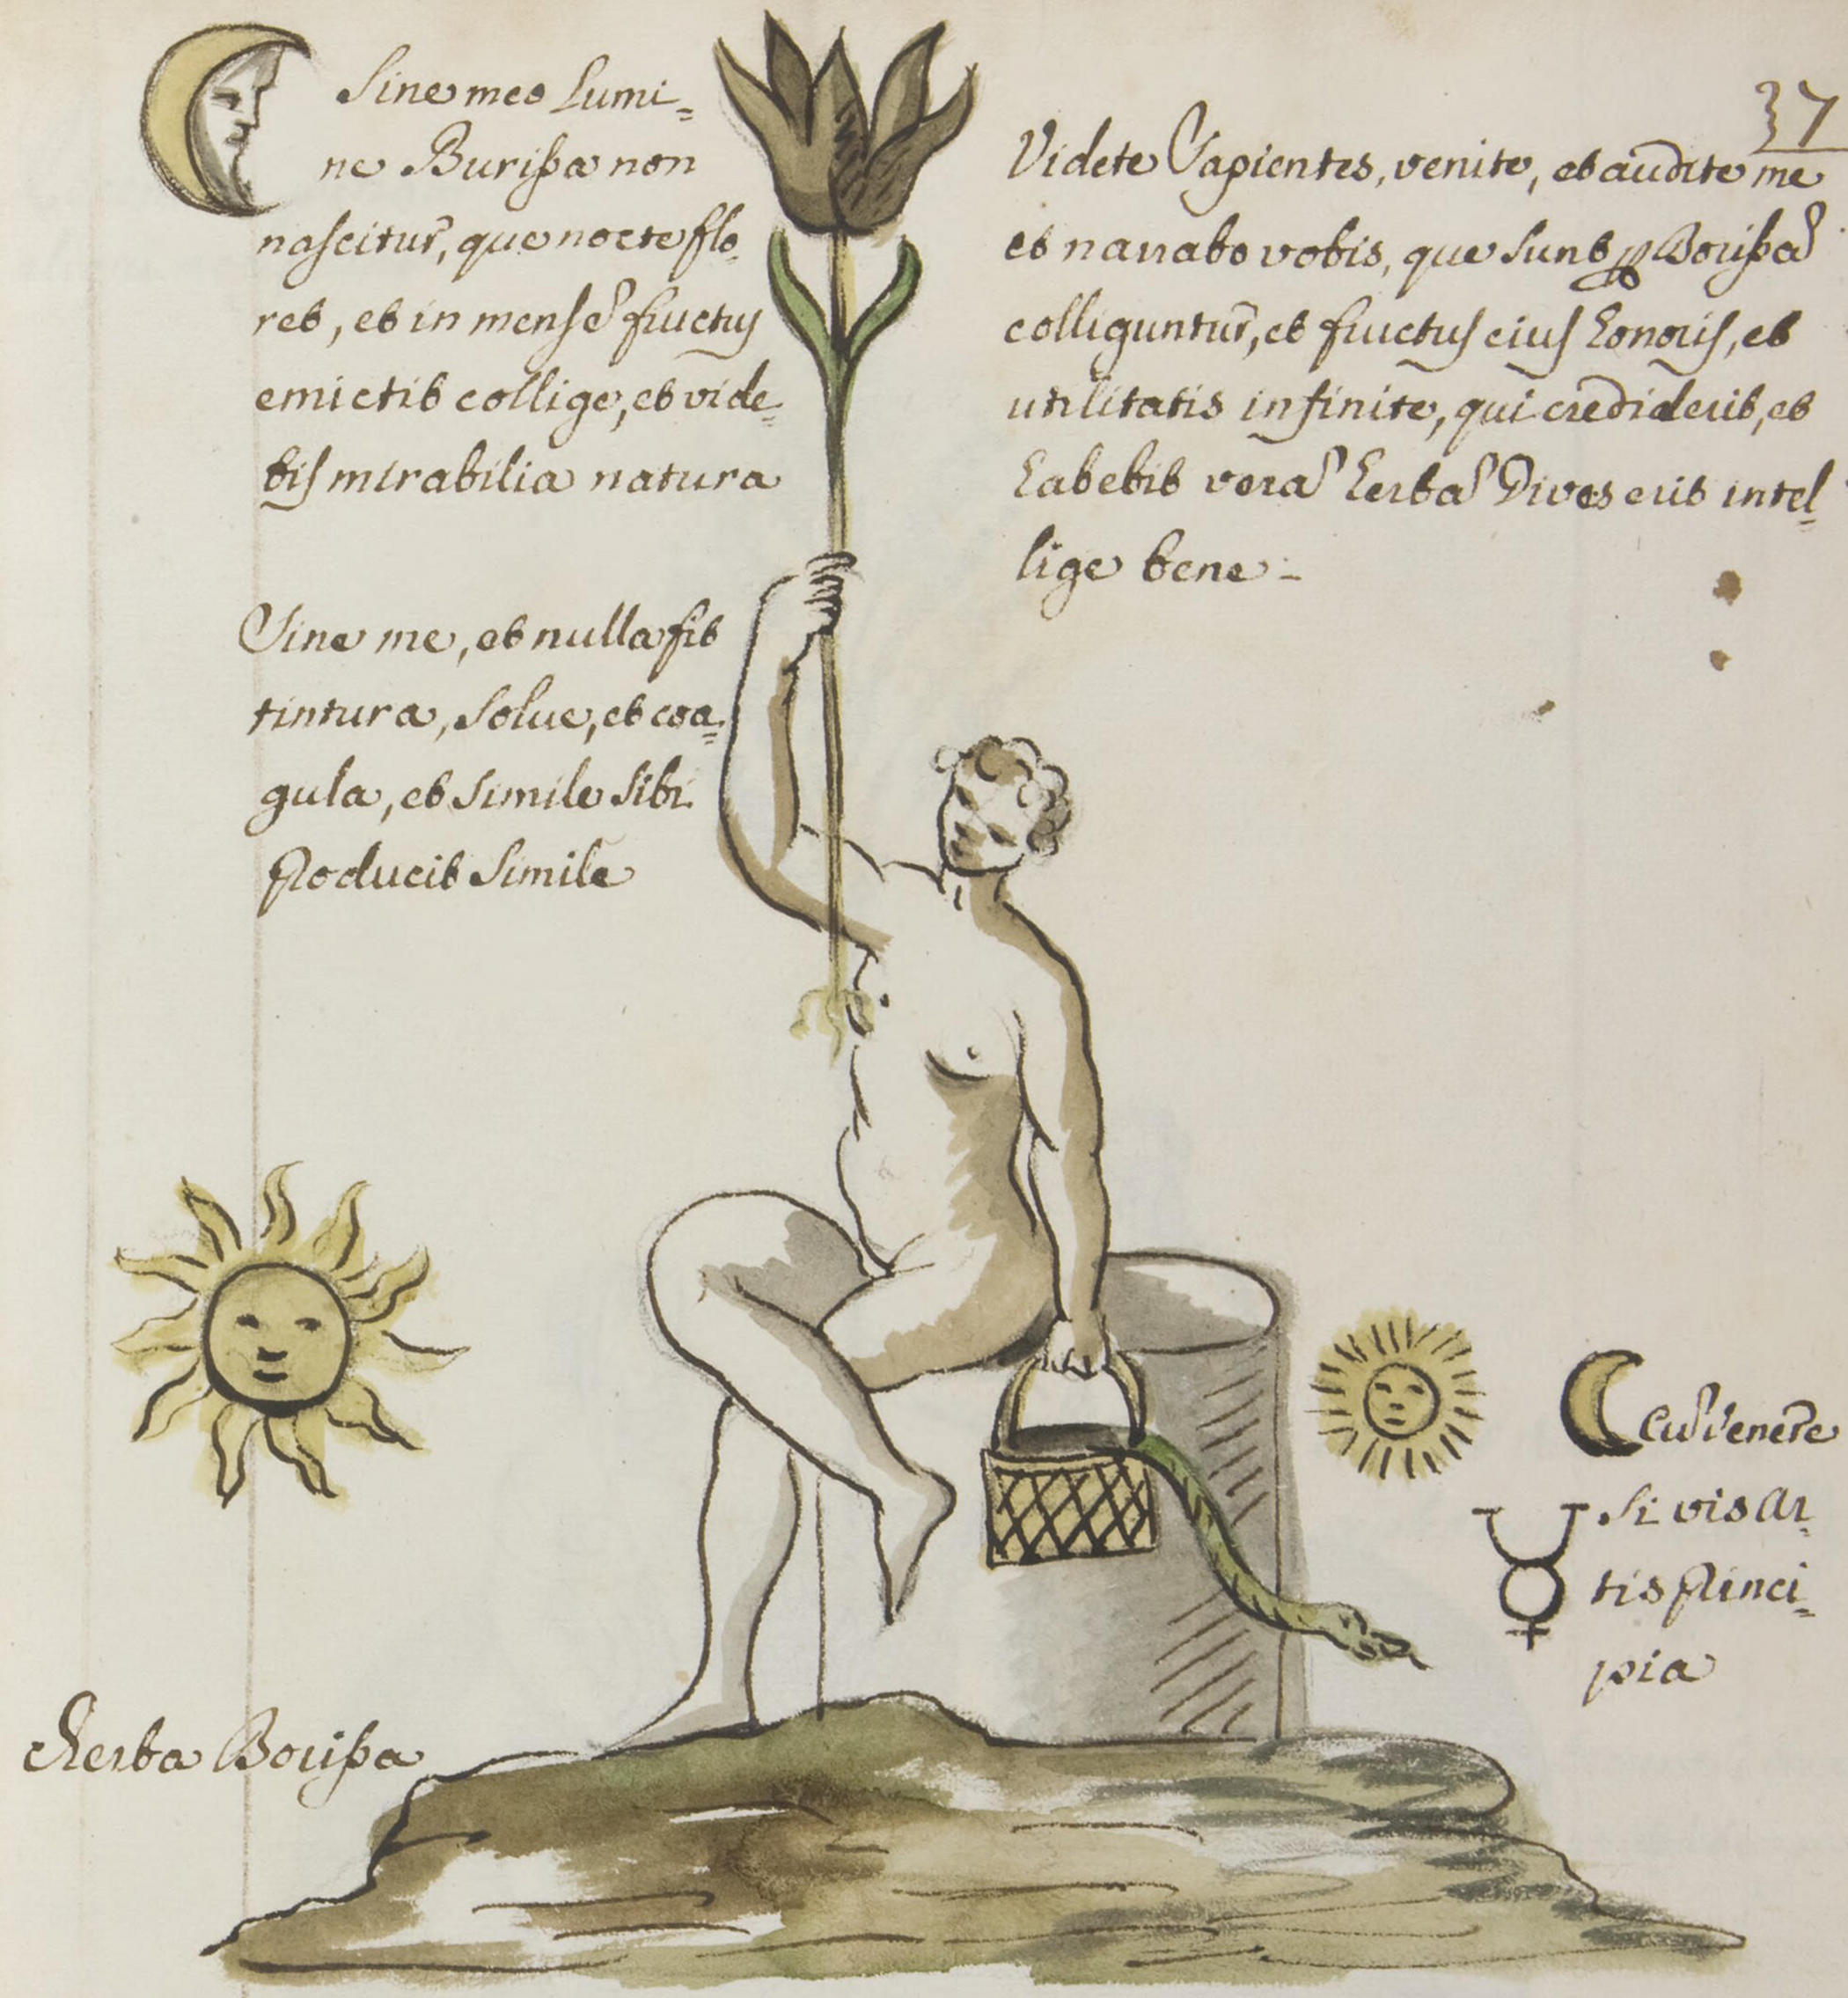 37
Sine meo Lumi=
ne Burißa non
nascitur, que nocte flo
ret, et in mense fructus
emictit collige, et vide=
bis mirabilia natura
Videte Sapientes, venite, et audite me
et narrabo vobis, que sunt p Borißa
colliguntur, et fructus eius honoris, et
utilitatis infinite, qui crediderit, et
habebit vera herba Dives erit intel=
lige bene -
Sine me, et nulla fit
tintura, Solue, et coa=
gula, et Simile Sibi
Producit Simile
Cu Venere
Si vis Ar=
tis Princi=
pia
Herba Borißa